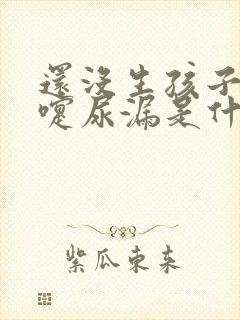 還沒生孩子
嚏尿漏是什
紫瓜東來